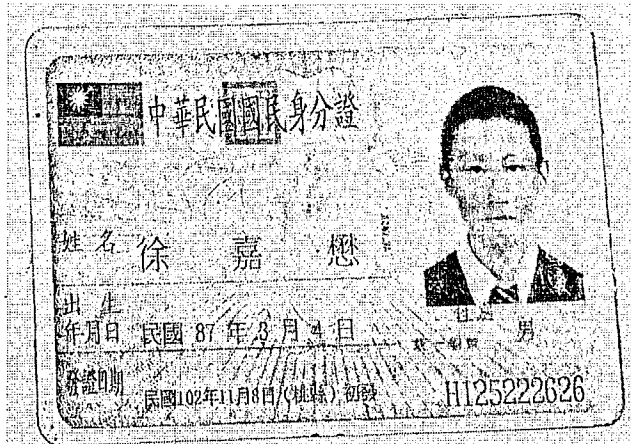 中華民國國民身分證
姓名 徐嘉懋
出生
年月日 民國 87 年 3 月 4 日
性別 男
統一編號
發證日期 民國102年11月8日(桃縣)初發
H125222626